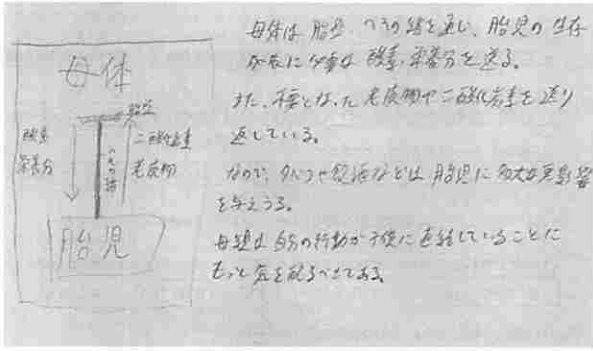 母体
胎盤
酸素
栄養分
へその緒
二酸化炭素
老廃物
胎児
母体は 胎盤、へその緒を通し、胎児の生存
成長に必要な 酸素、栄養分を送る。
また、不要となった老廃物や二酸化炭素を送り
返している。
なので、タバコや飲酒などは 胎児に多大な悪影響
を与えうる。
母親は自分の行動が子供に直結していることに
もっと気を配るべきである。